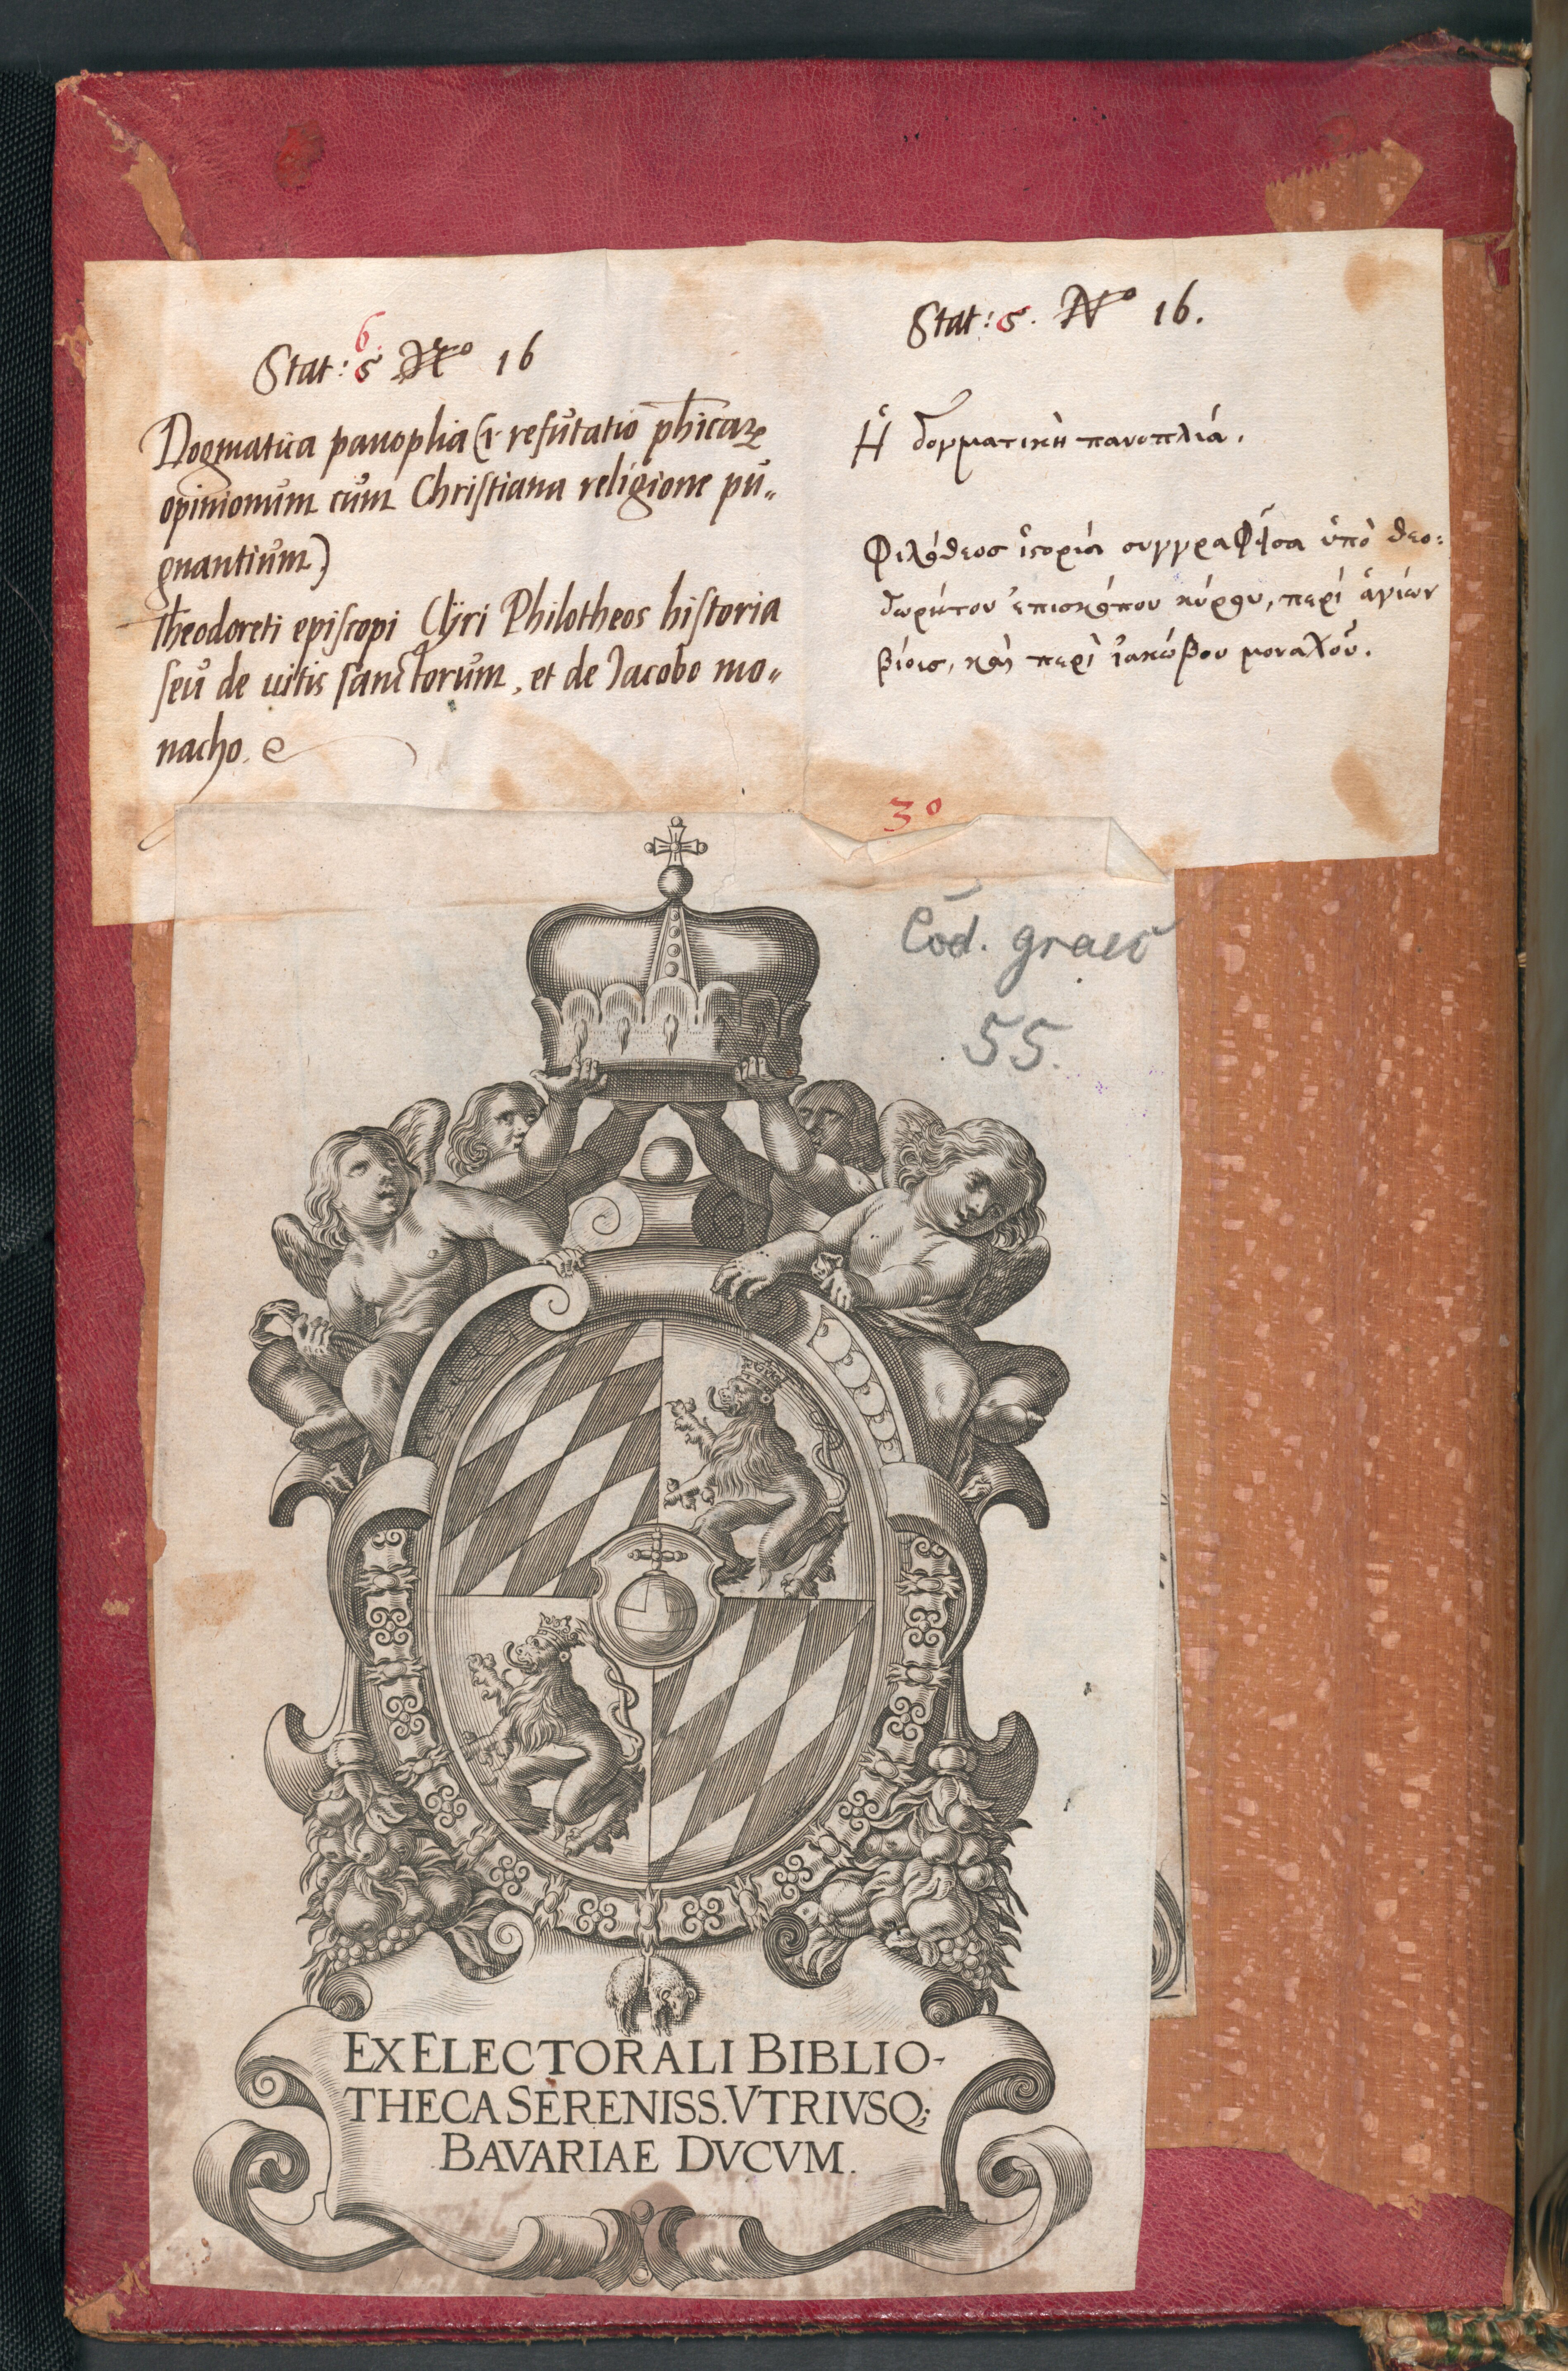 6.
Stat: 5 No 16
Dogmatica panoplia (i. refutatio phicarꝝ
opinionum cum Christiana religione pu„
gnantium)
Theodoreti episcopi Cÿri Philotheos historia
seu de uitis sanctorum, et de Jacobo mo„
nacho.
Stat: 5. No 16.
Ἡ δογματικὴ πανοπλιά.
Φιλόθεος ἱστορία συγγραφῆσα ὑπὸ θεο:
δωρήτου ἐπισκόπου κύρου, περί ἁγίων
βίοις, καὶ περὶ ἰακώβου μοναχοῦ.
30
Cod. graec
55.
EX ELECTORALI BIBLIO-
THECA SERENISS. VTRIVSQ;
BAVARIAE DVCVM.